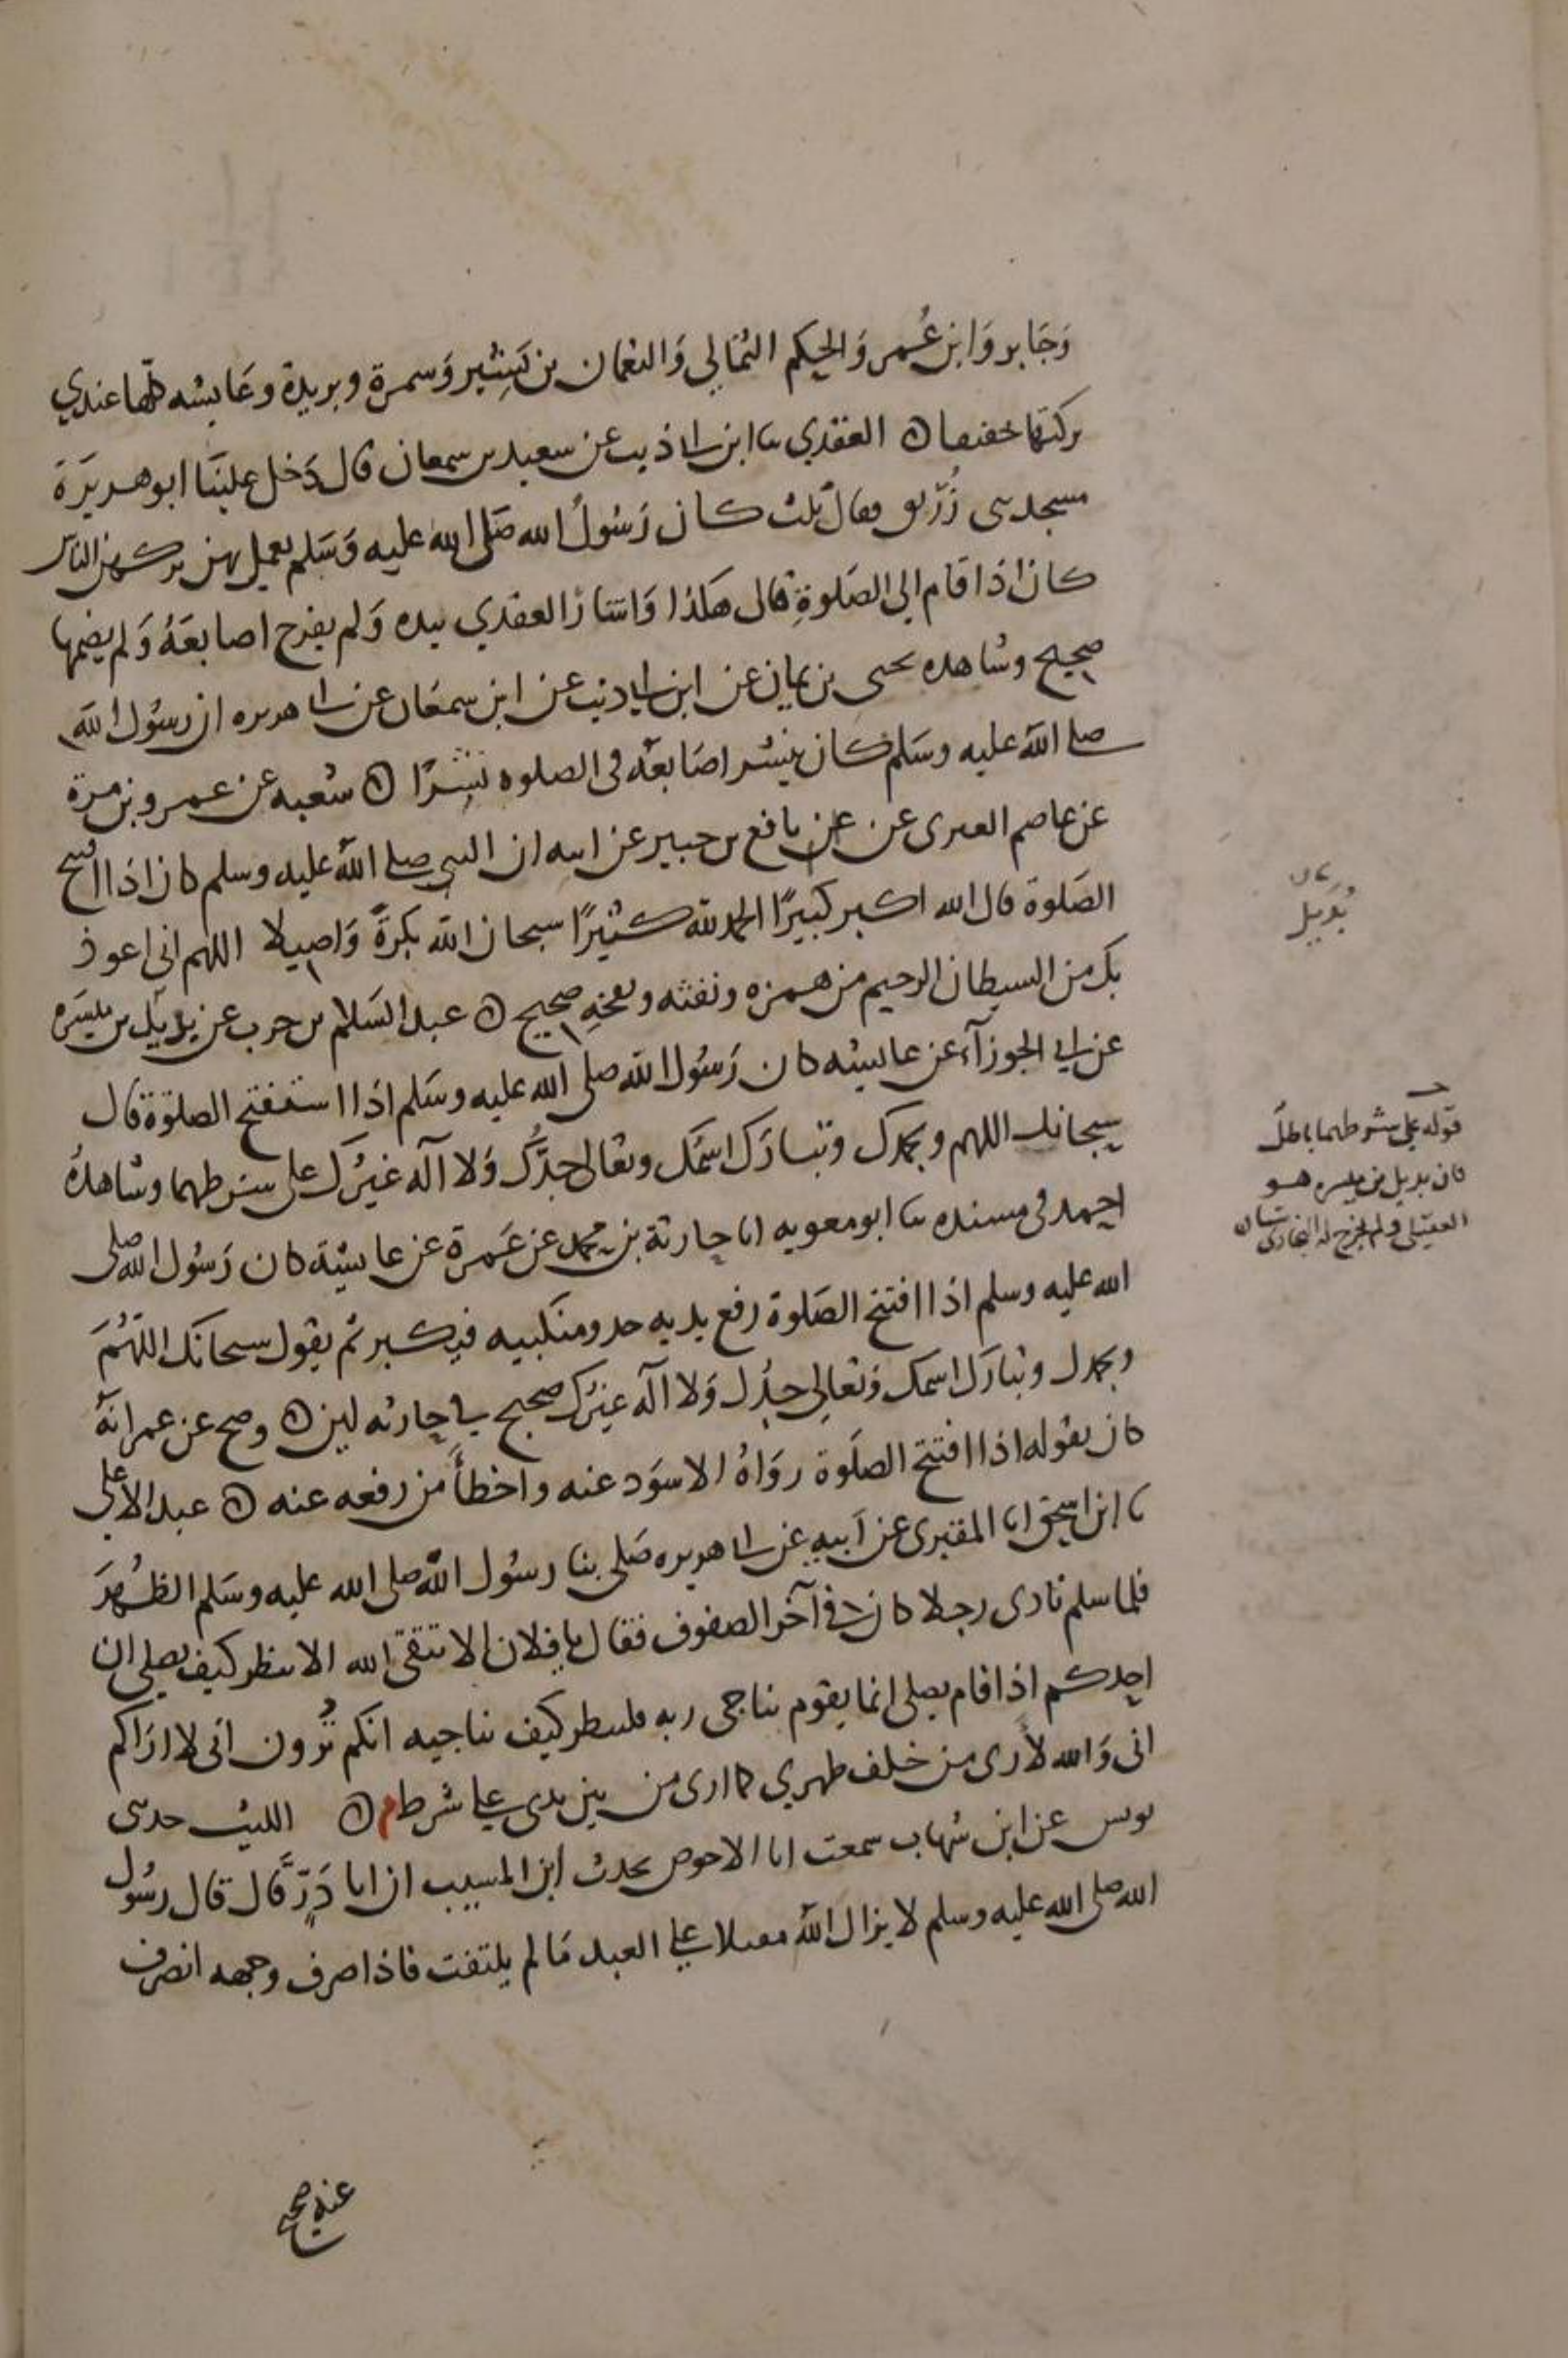 وَجَابر وَابن عُمر وَالحكم الثمالي وَالنعمان بن بَشِير وَسمرة وبريدة وعَايشه كلها عندي
تركتها تخفيفا ه العقدي ثنا ابن ابي ذيب عن سعيد بن سمعان قال دَخل علينَا ابو هريرَة
مسجد بني زُرَيق فقال ثلث كان رَسُولُ الله صَلى الله عليه وَسَلم يعمل بهن تركهن الناس
كان اذا قام الي الصَلوةِ قال هَكذا وَاشارَ العقدي بيده وَلم يفرج اصابعَهُ وَلم يضمها
صحيح وشاهده يحيى بن يمان عن ابن ابي ذيب عن ابن سمعَان عن ابي هريره ان رسُول الله
صلى الله عليه وسَلم كان ينشر اصَابعَه في الصلوه نَشرًا ه شعبه عن عمرو بن مرة
عن عاصم العنزى عن عن نافع بن جبير عن ابيه ان النبي صلى الله عليه وسلم كان اذا افتتح
الصَلوة قال الله اكبر كبيرًا الحمد لله كثيرًا سبحان الله بكرةً وَاصيلا اللهم انى اعوذ
بك من الشيطان الرجيم من همزه ونفثه ونفخه صحيح ه عبد السَلام بن حرب عن بديل بن ميسَره
عن ابي الجوزآء عن عايشه كان رَسُول الله صلى الله عليه وسَلم اذا استفتح الصلوة قال
سبحانك اللهم وبحمدك وتبارَك اسمُك وتعَالى جدُّك وَلا اله غيرُك على شرطهما وشاهدُه
احمد في مسنده ثنا ابو معويه انا حارثة بن محمد عن عَمرة عن عايشَة كان رَسُول الله صلى
الله عليه وسلم اذا افتتح الصَلوة رفع يديه حذو منكبيه فيكبر ثم يقول سبحانَك اللّهُمَ
وبحمدك وتبارَك اسمك وَتعَالى جدُك وَلا اله غيرُك صحيح في حارثه لين ه وصح عن عمر انهُ
كان يقوله اذا افتتح الصلَوة روَاهُ الاسوَد عنه واخطأ من رفعه عنه ه عبد الاعلى
ثنا ابن اسحق انا المقبرى عن اَبيهِ عن ابي هريره صَلى بنا رسُول الله صلى الله عليه وسَلم الظُهرَ
فلما سلم نادى رجلا كان في آخر الصفوف فقال يا فلان الا تتقى الله الا تنظر كيف تصلى ان
احدكم اذا قام يصلى انما يقوم يناجى ربه فلينظر كيف يناجيه انكم تُرون انى لا ارَاكم
انى وَالله لأرى من خلف ظهري كما ارى من بين يدى على شرط م ه الليث حدثنى
يونس عن ابن شهاب سمعت ابا الاحوص يحدث ابن المسيب ان ابا ذَرٍّ قال قال رسُول
الله صلى الله عليه وسلم لا يزال الله مقبلا على العبد مَا لم يلتفت فاذا صرف وجهه انصرف
عنه صحيح
بُدَيل
قوله على شرطهما باطل
فان بديل بن ميسره هو
العقيلى ولم يخرج له البخارى